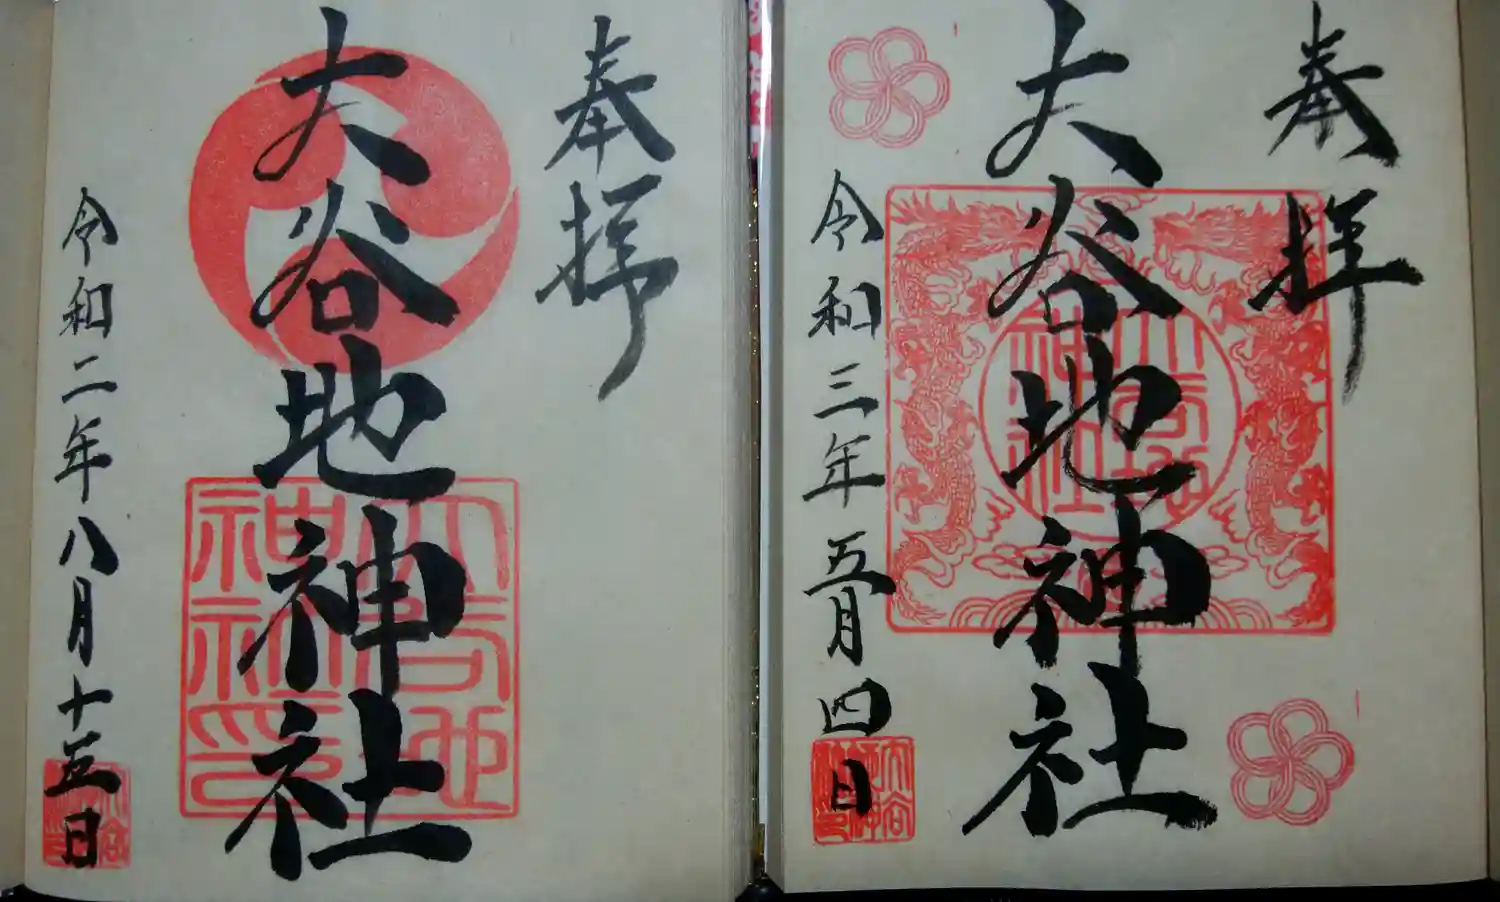 奉拝
大谷地神社
令和二年八月十五日
大谷地神社印
奉拝
大谷地神社
令和三年五月四日
大谷地神社